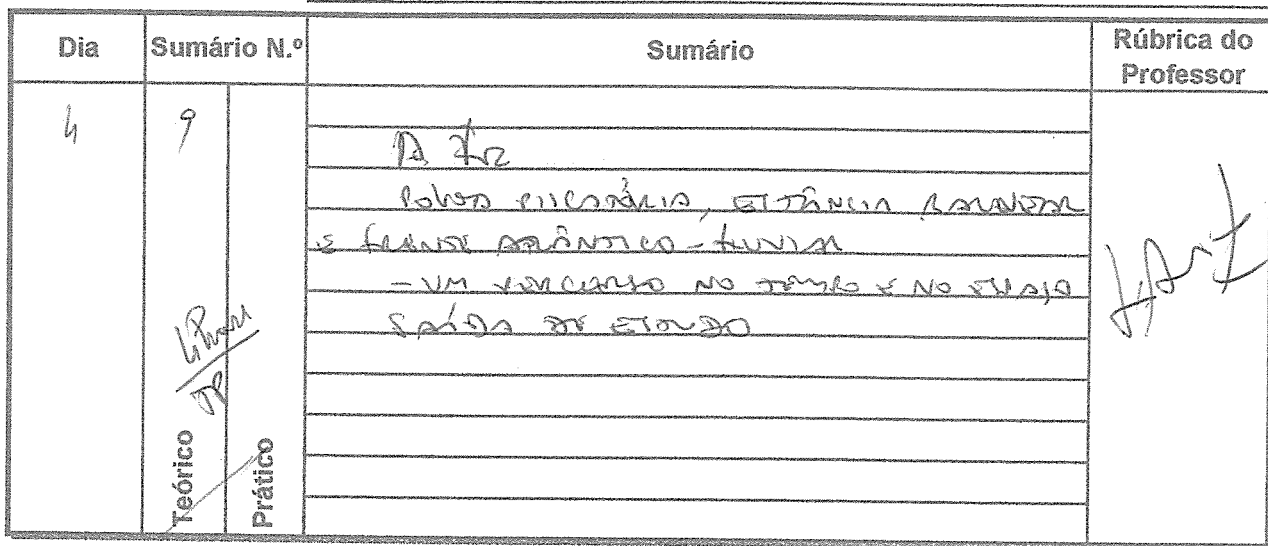 Dia
Sumário N.º
Sumário
Rúbrica do
Professor
4
9
A Foz
Póvoa piscatória, estância balnear
e frente atlântico-fluvial
- um percurso no tempo e no espaço
Saída de estudo
TP
Teórico
Prático